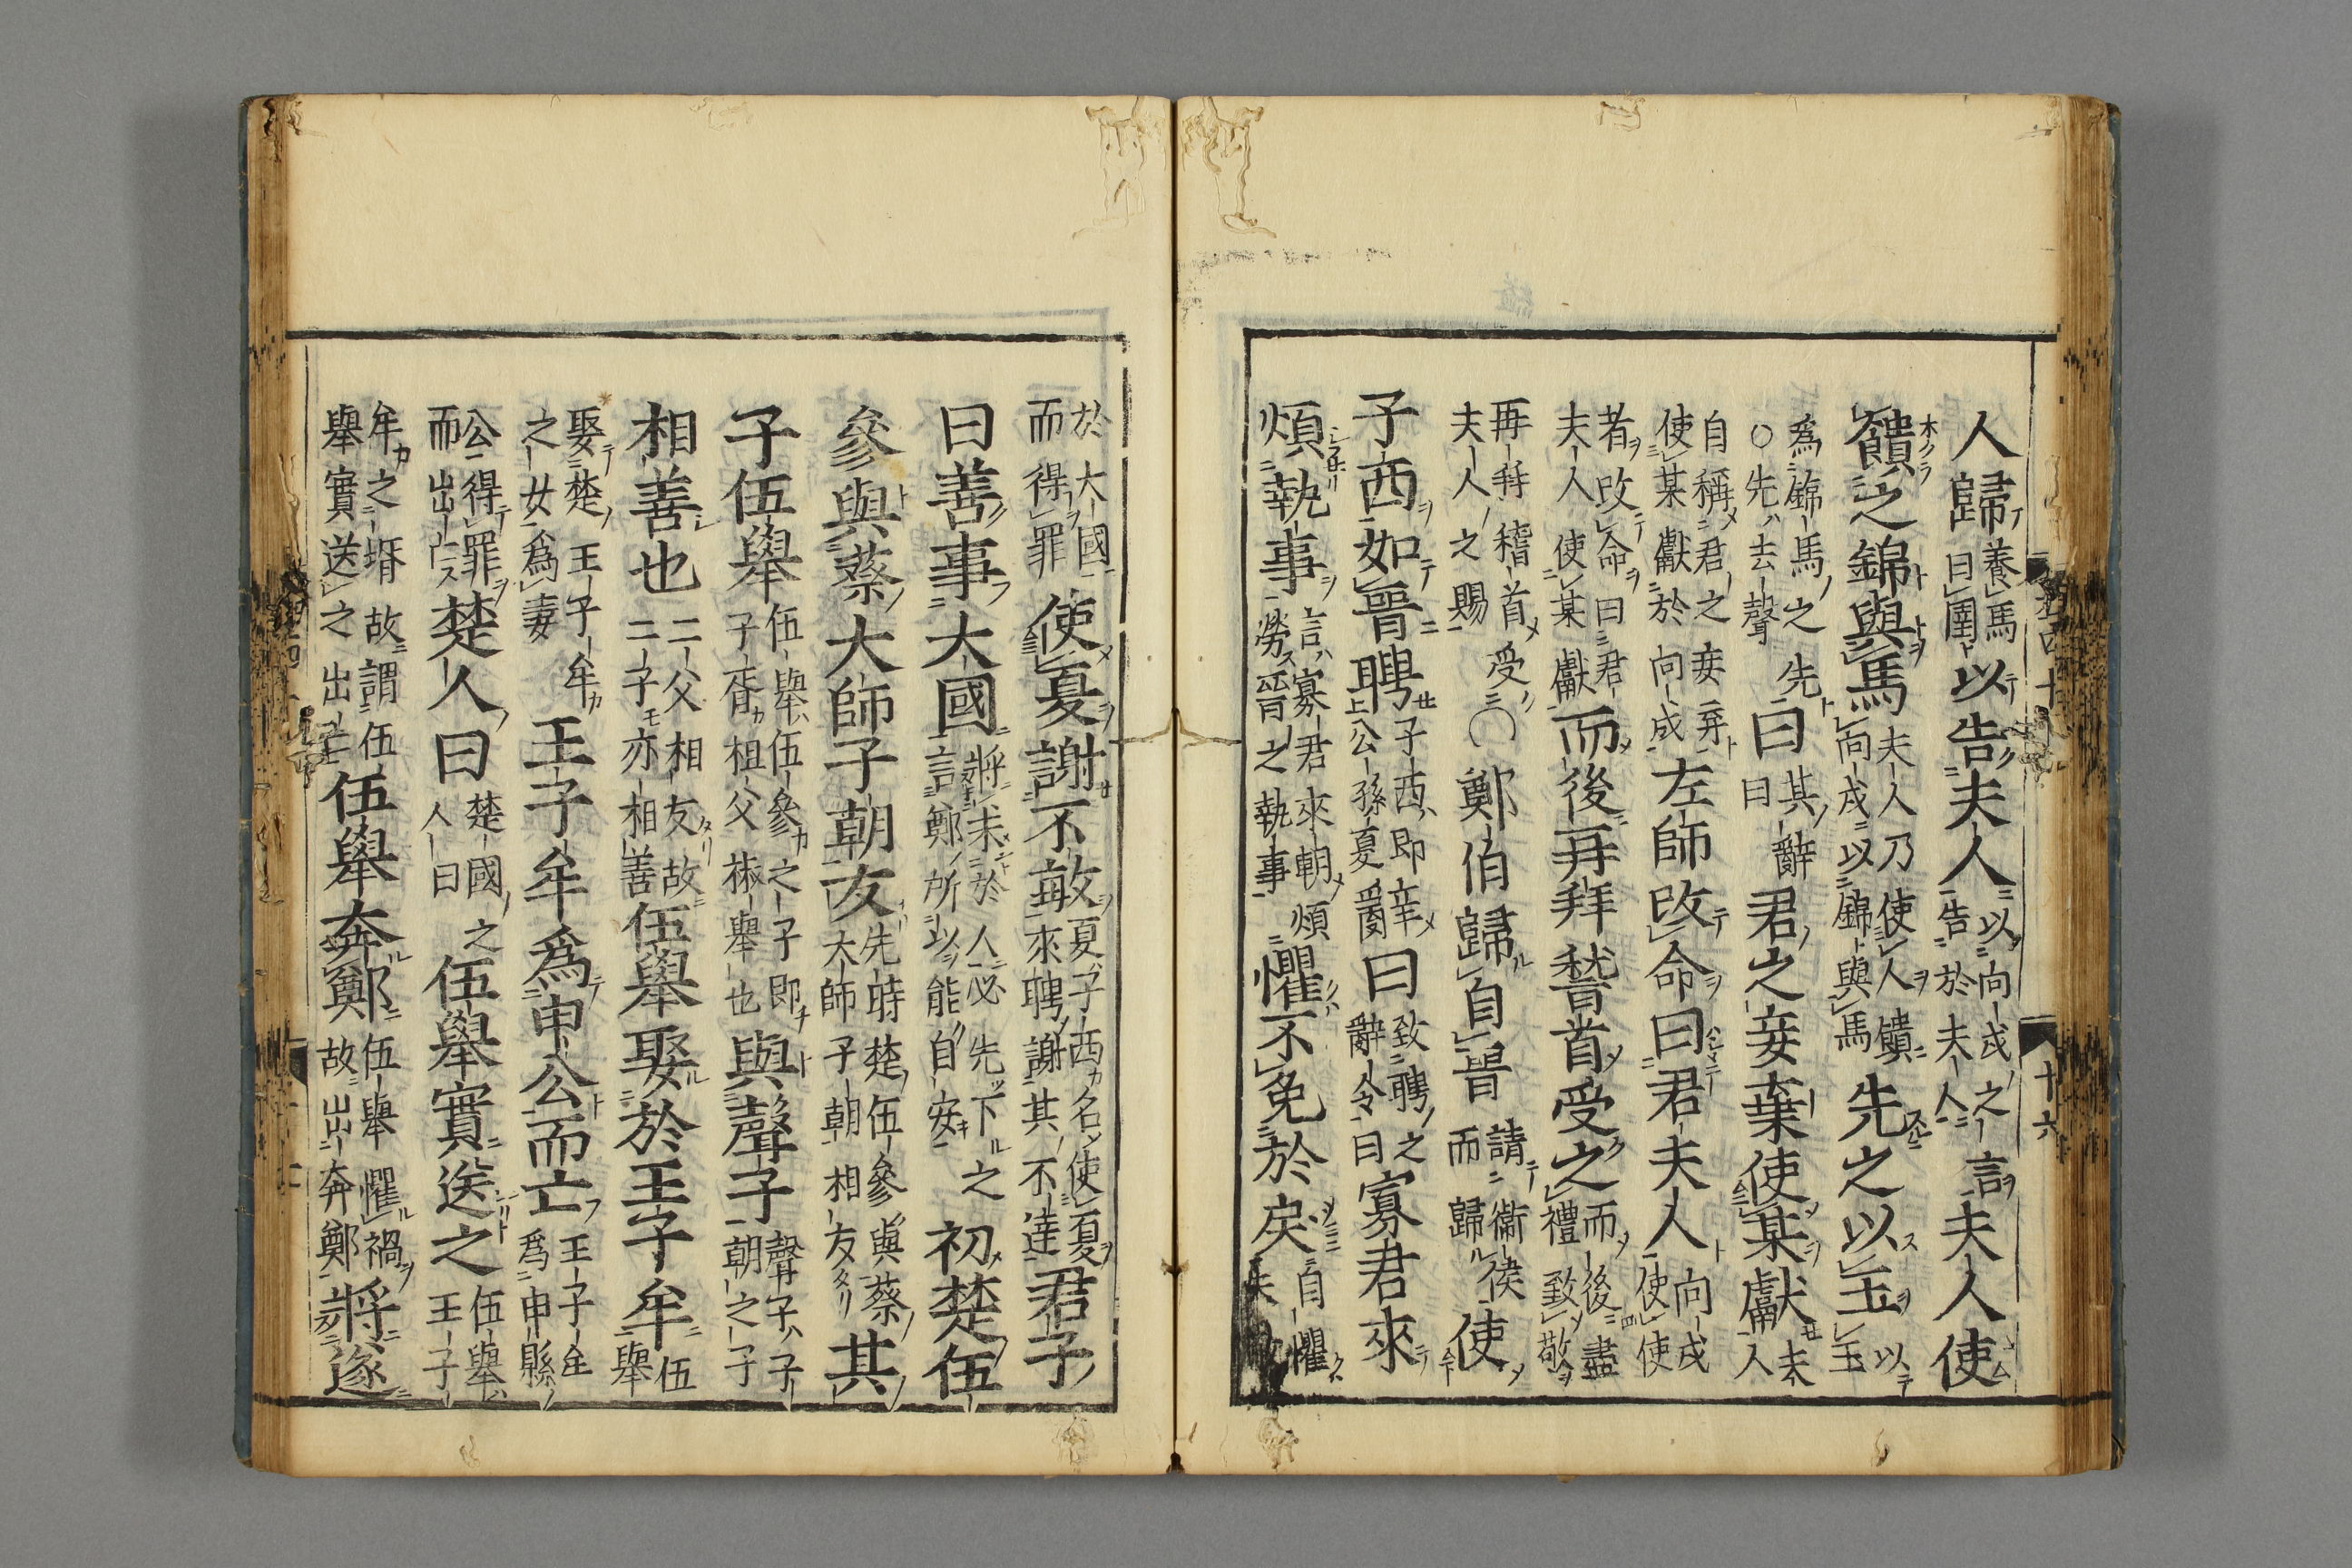 人歸養馬曰圉以告夫人以向戌之言告於夫人夫人使
饋之錦與馬夫人乃使人饋向戌以錦與馬先之以玉以玉
爲錦馬之先○先去聲曰其辭曰君之妾棄使某獻夫人
自稱君之妾棄使某獻於向戌左師改命曰君夫人向戌使使
者改命曰君夫人使某獻而後再拜稽首受之而後盡禮致敬
再拜稽首受夫人之賜○鄭伯歸自晉請衞侯而歸使
子西如晉聘子西即公孫夏辛上爲曰致聘之辭令曰寡君來
煩執事言寡君來朝煩勞晉之執事懼不免於戾自懼
於大國而得罪使夏謝不敏夏子西名使夏來聘謝其不達君子
曰善事大國將未於人必先下之言鄭所以能自安初楚伍
參與蔡大師子朝友先時楚伍參與蔡大師子朝相友其
子伍舉伍舉伍參之子即子胥祖父椒舉也與聲子聲子子朝之子
相善也二父相友故二子亦相善伍舉娶於王子牟伍舉
娶楚王子牟之女爲妻王子牟爲申公而亡王子牟爲申縣
公得罪而出亡楚人曰楚國之人曰伍舉實送之伍舉王子
牟之壻故謂伍舉實送之出亡伍舉奔鄭伍舉懼禍故出奔鄭將遂
十六